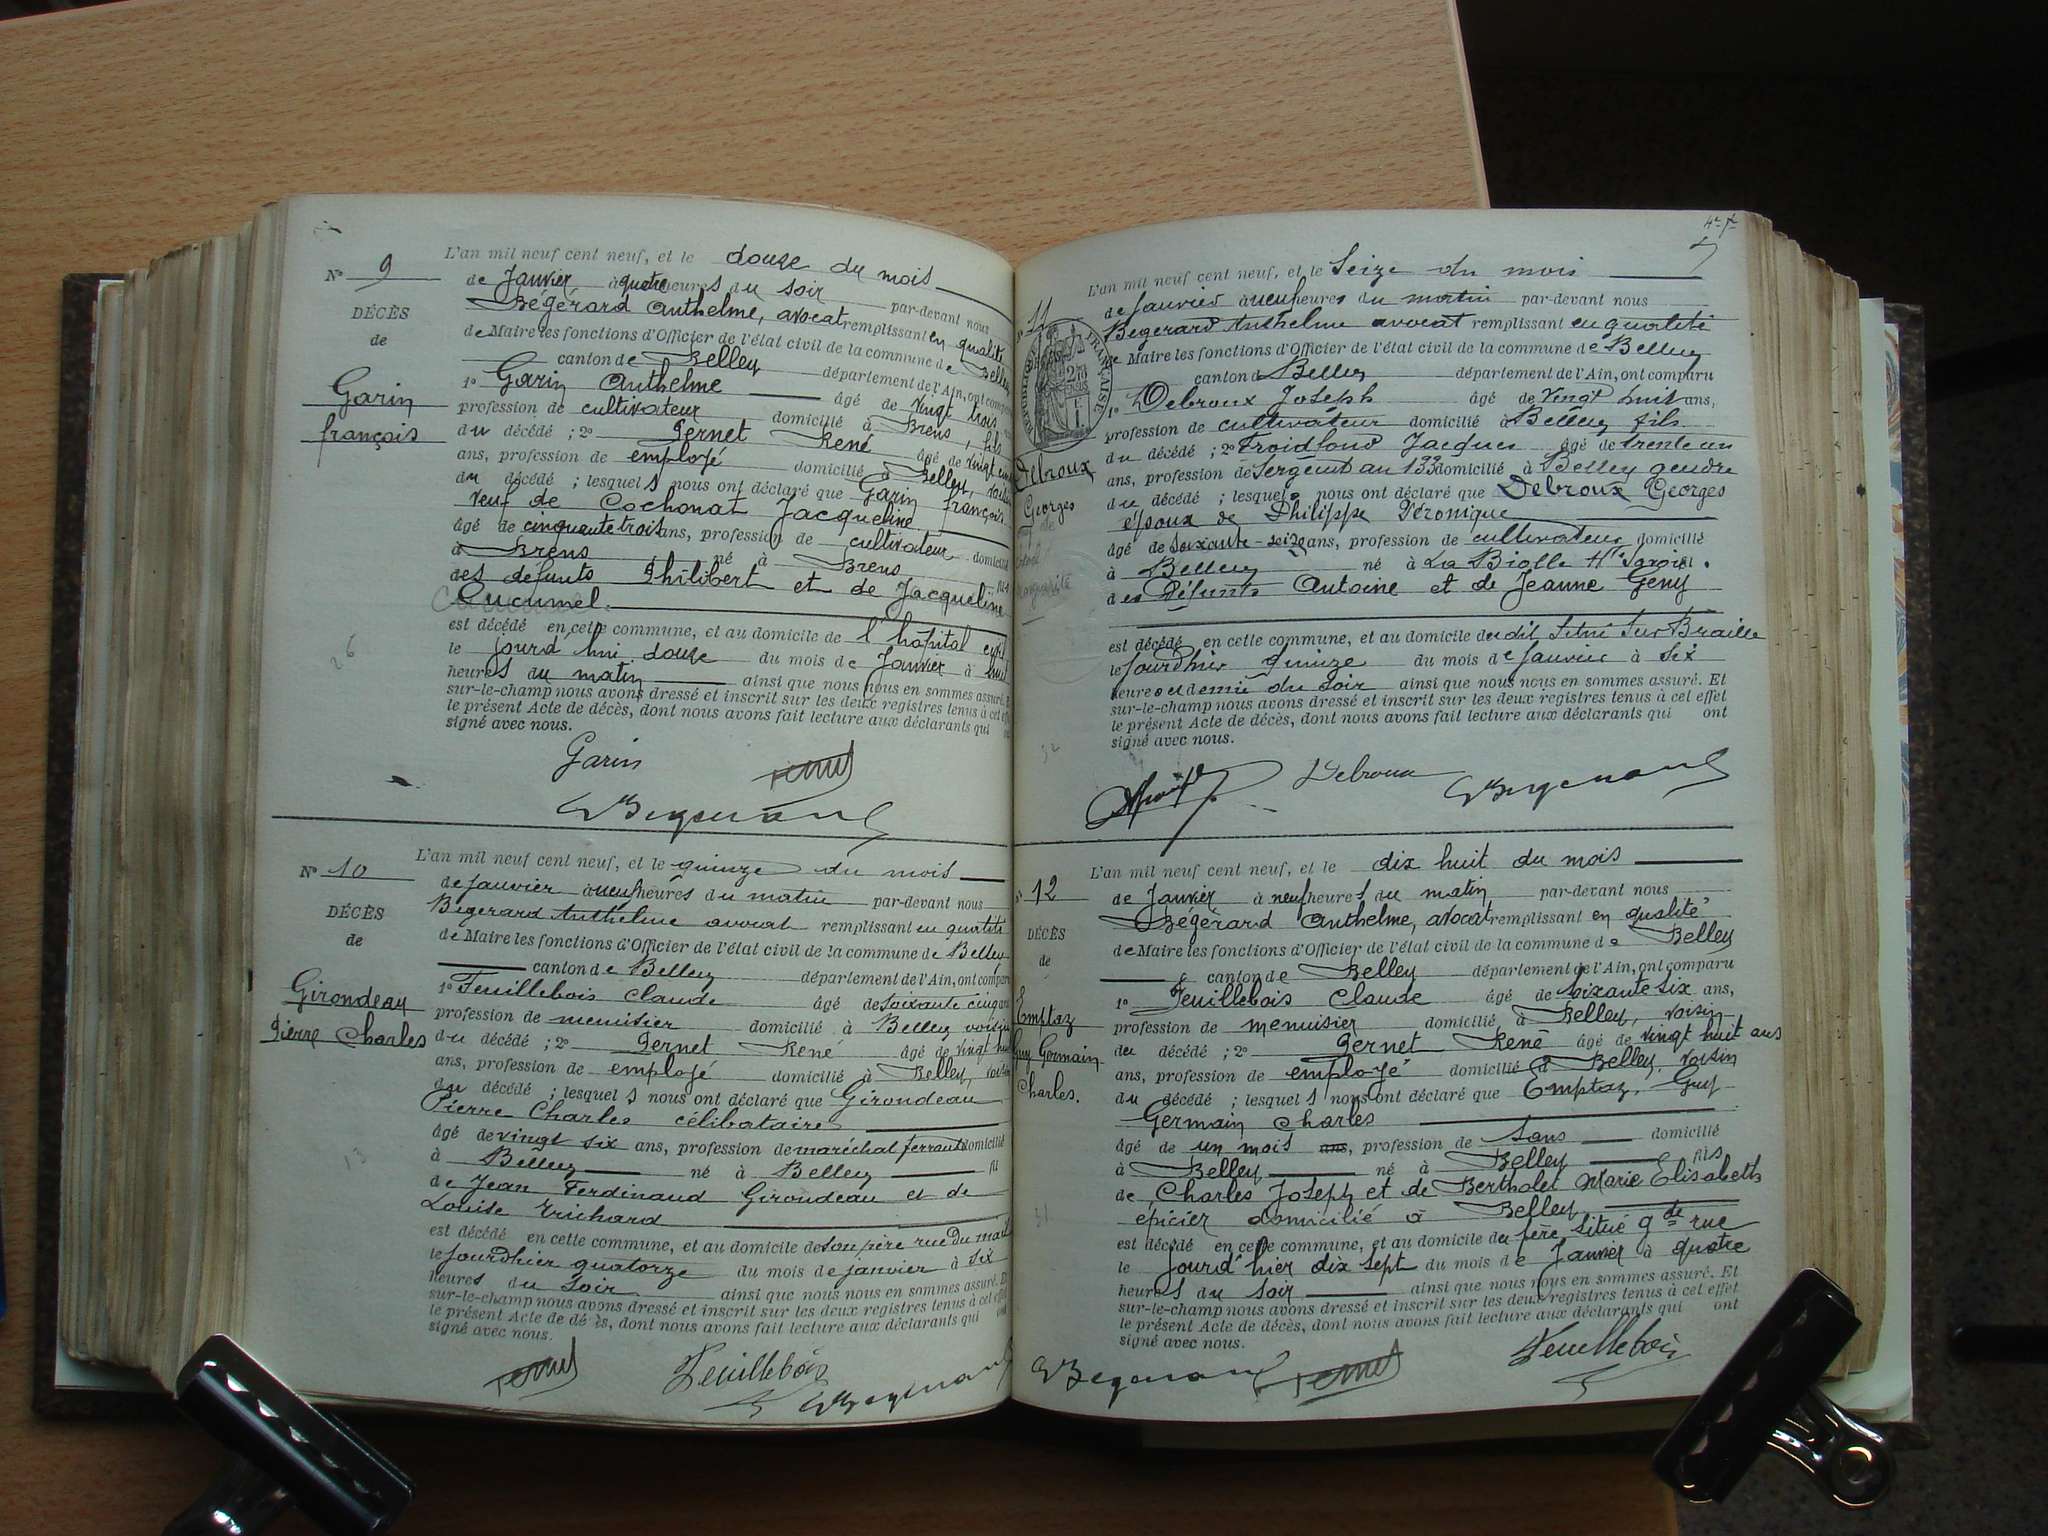 N° 9
DÉCÈS
de
Garin
françois
L'an mil neuf cent neuf, et le douze du mois
de Janvier à quatre heures du soir par-devant nous
Bégérard Anthelme, avocat remplissant en qualité
de Maire les fonctions d'Officier de l'état civil de la commune de Belley
canton de Belley département de l'Ain, ont comparu
1° Garin Anthelme âgé de vingt trois
profession de cultivateur domicilié à Brens, fils
du décédé ; 2° Pernet René âgé de vingt
ans, profession de employé domicilié à Belley, voisin
du décédé ; lesquels nous ont déclaré que Garin françois
veuf de Cochonat Jacqueline
âgé de cinquante trois ans, profession de cultivateur domicilié
à Brens né à Brens fils
des défunts Philibert et de Jacqueline
Cucumel.
est décédé en cette commune, et au domicile de l'hôpital
le jourd'hui douze du mois de Janvier à huit
heures du matin ainsi que nous nous en sommes assuré. Et
sur-le-champ nous avons dressé et inscrit sur les deux registres tenus à cet effet
le présent Acte de décès, dont nous avons fait lecture aux déclarants qui
signé avec nous.
Garin
26
N° 10
DÉCÈS
de
Girondeau
Pierre Charles
L'an mil neuf cent neuf, et le quinze du mois
de janvier à neuf heures du matin par-devant nous
Begerard Anthelme avocat remplissant en qualité
de Maire les fonctions d'Officier de l'état civil de la commune de Belley
canton de Belley département de l'Ain, ont comparu
1° Feuillebois Claude âgé de soixante cinq ans
profession de menuisier domicilié à Belley voisin
du décédé ; 2° Pernet René âgé de vingt huit
ans, profession de employé domicilié à Belley, voisin
du décédé ; lesquels nous ont déclaré que Girondeau
Pierre Charles célibataire
âgé de vingt six ans, profession de maréchal ferrant domicilié
à Belley né à Belley fil
de Jean Ferdinand Girondeau et de
Louise Trichard
est décédé en cette commune, et au domicile de son père rue du mail
le jourdhier quatorze du mois de janvier à six
heures du soir ainsi que nous nous en sommes assuré. Et
sur-le-champ nous avons dressé et inscrit sur les deux registres tenus à cet effet
le présent Acte de décès, dont nous avons fait lecture aux déclarants qui ont
signé avec nous.
Feuillebois
13
N° 11
RÉPUBLIQUE FRANÇAISE
Debroux
Georges
L'an mil neuf cent neuf, et le Seize du mois
de janvier à neuf heures du matin par-devant nous
Begerard Anthelme avocat remplissant en qualité
de Maire les fonctions d'Officier de l'état civil de la commune de Belley
canton de Belley département de l'Ain, ont comparu
1° Debroux Joseph âgé de vingt huit ans,
profession de cultivateur domicilié à Belley fils
du décédé ; 2° Froidfond Jacques âgé de trente un
ans, profession de Sergent au 133 domicilié à Belley gendre
du décédé ; lesquels nous ont déclaré que Debroux Georges
époux de Philippe Véronique
âgé de soixante-seize ans, profession de cultivateur domicilié
à Belley né à La Biolle Hte Savoie.
des Défunts Antoine et de Jeanne Geny
est décédé en cette commune, et au domicile du dit situé sur Braille
le jourdhier quinze du mois de janvier à six
heures et demie du soir ainsi que nous nous en sommes assuré. Et
sur-le-champ nous avons dressé et inscrit sur les deux registres tenus à cet effet
le présent Acte de décès, dont nous avons fait lecture aux déclarants qui ont
signé avec nous.
Debroux
N° 12
DÉCÈS
de
Emptaz
Guy Germain
Charles.
L'an mil neuf cent neuf, et le dix huit du mois
de Janvier à neuf heures du matin par-devant nous
Bégérard Anthelme, avocat remplissant en qualité
de Maire les fonctions d'Officier de l'état civil de la commune de Belley
canton de Belley département de l'Ain, ont comparu
1° Feuillebois Claude âgé de soixante six ans,
profession de menuisier domicilié à Belley, voisin
du décédé ; 2° Pernet René âgé de vingt huit ans
ans, profession de employé domicilié à Belley, voisin
du décédé ; lesquels nous ont déclaré que Emptaz, Guy
Germain Charles
âgé de un mois ans, profession de sans domicilié
à Belley né à Belley fils
de Charles Joseph et de Bertholet Marie Elisabeth
épicier domicilié à Belley
est décédé en cette commune, et au domicile du père situé gde rue
le jourd'hier dix sept du mois de Janvier à quatre
heures du soir ainsi que nous nous en sommes assuré. Et
sur-le-champ nous avons dressé et inscrit sur les deux registres tenus à cet effet
le présent Acte de décès, dont nous avons fait lecture aux déclarants qui ont
signé avec nous.
Feuillebois